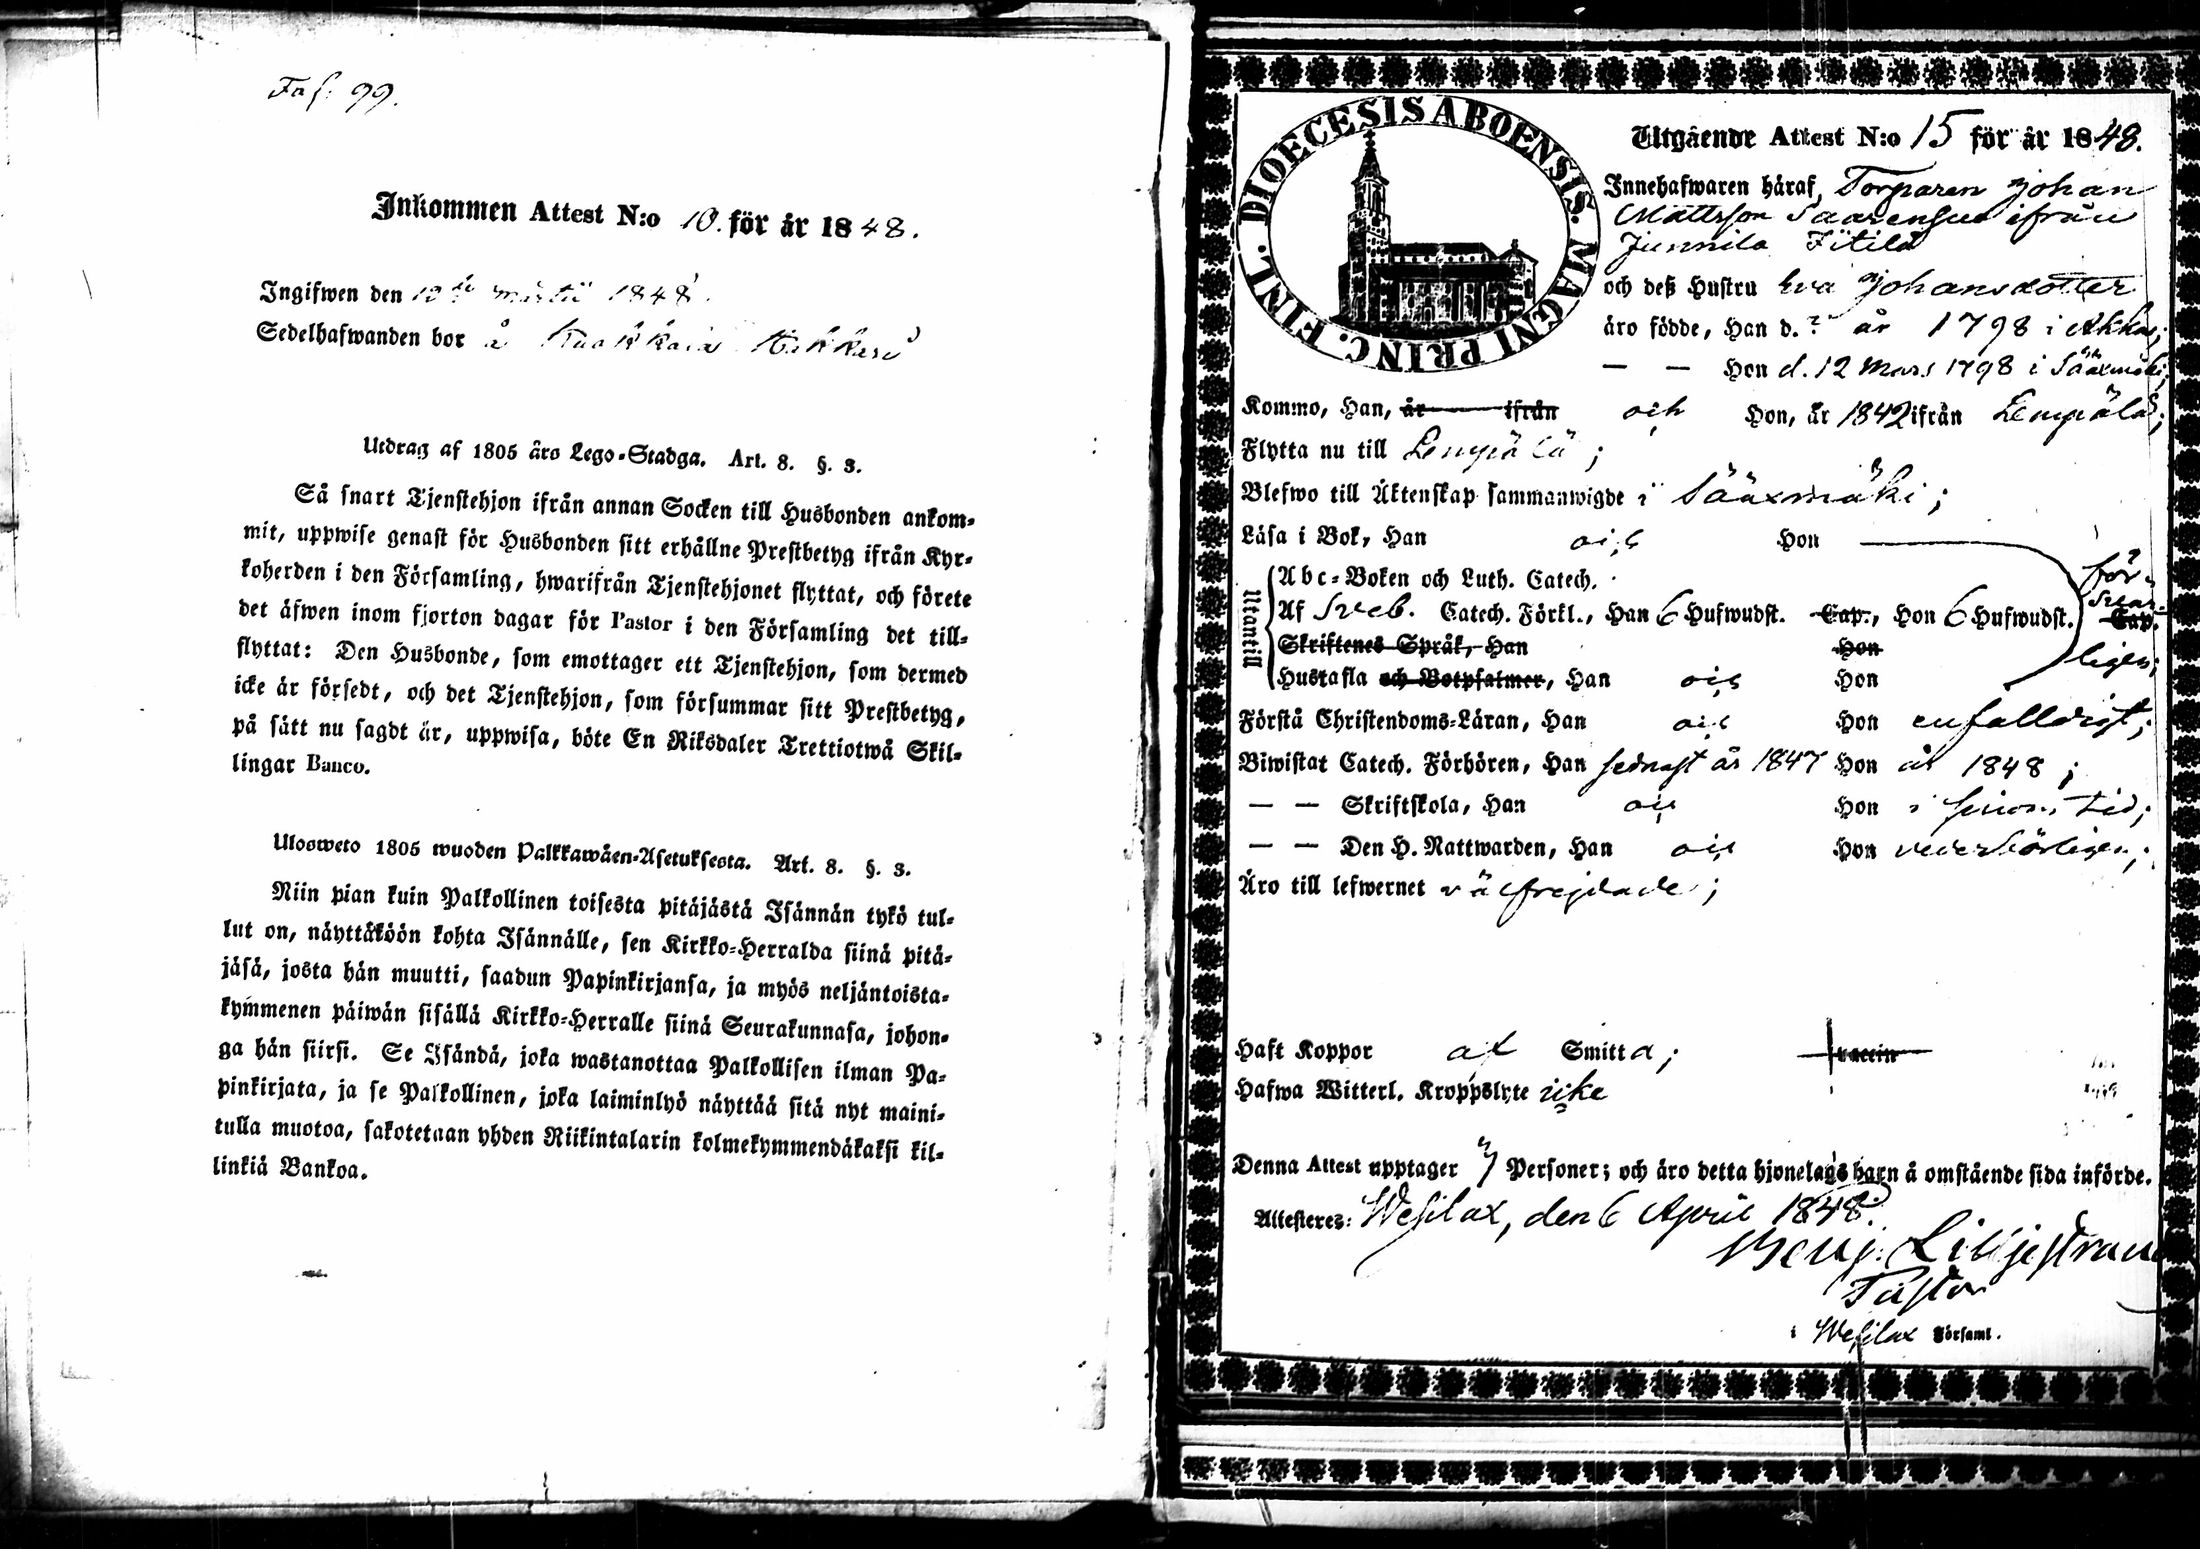 Fol. 99.
Inkommen Attest N:o 10. för år 1848.
Ingifwen den martii 1848
Sedelhafwanden bor å
Utdrag af 1805 års Lego-Stadga. Art. 8. §. 3.
Så snart Tjenstehjon ifrån annan Socken till Husbonden ankom-
mit, uppwise genast för Husbonden sitt erhållne Prestbetyg ifrån Kyr-
koherden i den Församling, hwarifrån Tjenstehjonet flyttat, och förete
det äfwen inom fjorton dagar för Pastor i den Församling det till-
flyttat: Den Husbonde, som emottager ett Tjenstehjon, som dermed
icke är försedt, och det Tjenstehjon, som försummar sitt Prestbetyg,
på sätt nu sagdt är, uppwisa, böte En Riksdaler Trettiotwå Skil-
lingar Banco.
Ulosweto 1805 wuoden Palkkawäen-Asetuksesta. Art. 8. §. 3.
Niin pian kuin Palkollinen toisesta pitäjästä Isännän tykö tul-
lut on, näyttäköön kohta Isännälle, sen Kirkko-Herralda siinä pitä-
jäsä, josta hän muutti, saadun Papinkirjansa, ja myös neljäntoista-
kymmenen päiwän sisällä Kirkko-Herralle siinä Seurakunnasa, johon-
ga hän siirsi. Se Isändä, joka wastanottaa Palkollisen ilman Pa-
pinkirjata, ja se Palkollinen, joka laiminlyö näyttää sitä nyt maini-
tulla muotoa, sakotetaan yhden Riikintalarin kolmekymmendäkaksi kil-
linkiä Bankoa.
DIOECESIS ABOENSIS. MAGNI PRINC. FINL.
Utgående Attest N:o 15 för år 1848.
Innehafwaren häraf, Torparen Johan
Mattsson Saarensuu ifrån
Junnila
och deß Hustru Eva Johansdotter
äro födde, Han d. ? år 1798 i Akkas;
— — Hon d. 12 Mars 1798 i Sääxmäki;
Kommo, Han, år ifrån och Hon, år 1842 ifrån Lempälä;
Flytta nu till Lempälä;
Blefwo till Äktenskap sammanwigde i Sääxmäki;
Läsa i Bok, Han och Hon
Utantill
Abc-Boken och Luth. Catech.
Af Sveb. Catech. Förkl., Han 6 Hufwudst. Cap., Hon 6 Hufwudst. Cap.
Skriftenes Språk, Han Hon
Hustafla och Botpsalmer, Han och Hon
för-
svar-
ligen;
Förstå Christendoms-Läran, Han och Hon enfalldigt;
Biwistat Catech. Förhören, Han sednast år 1847 Hon år 1848;
— — Skriftskola, Han och Hon i sinom tid;
— — Den H. Nattwarden, Han och Hon vederbörligen;
Äro till lefwernet välfrejdade;
Haft Koppor af Smitta; vaccin
Hafwa Witterl. Kroppslyte icke
Denna Attest upptager 7 Personer; och äro detta hjonelags barn å omstående sida införde.
Attesteres: Wesilax, den 6 April 1848.
Benj. Liljestrand
Pastor
i Wesilax Församl.